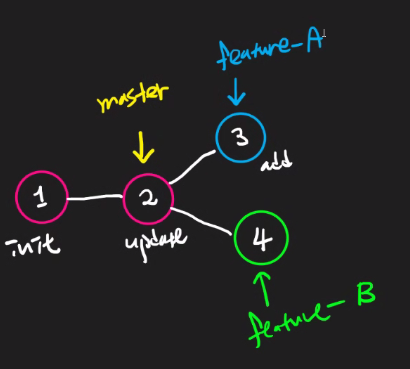 feature-A
master
3
add
1
2
init
update
4
feature-B